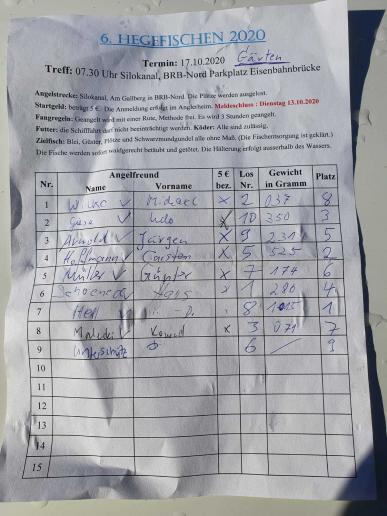 6. HEGEFISCHEN 2020
Termin: 17.10.2020 Gärten
Treff: 07.30 Uhr Silokanal, BRB-Nord Parkplatz Eisenbahnbrücke
Angelstrecke: Silokanal, Am Gallberg in BRB-Nord. Die Plätze werden ausgelost.
Startgeld: beträgt 5 €. Die Anmeldung erfolgt im Anglerheim. Meldeschluss : Dienstag 13.10.2020
Fangregeln: Geangelt wird mit einer Rute, Methode frei. Es wird 3 Stunden geangelt.
Futter: die Schifffahrt darf nicht beeinträchtigt werden. Köder: Alle sind zulässig.
Zielfisch: Blei, Güster, Plötze und Schwarzmundgundel alle ohne Maß. (Die Fischentsorgung ist geklärt.)
Die Fische werden sofort waidgerecht betäubt und getötet. Die Hälterung erfolgt ausserhalb des Wassers.
Nr. Angelfreund 5 € bez. Los Nr. Gewicht in Gramm Platz
Name Vorname
1 Michael x 2 037 8
2 Udo x 10 350 3
3 Arnold Jürgen x 9 231 5
4 Hoffmann Carsten x 5 525 2
5 Müller Günter x 7 174 6
6 Hans 1 280 4
7 8 1
8 Konrad x 3 071 7
9 6 / 9
10
11
12
13
14
15